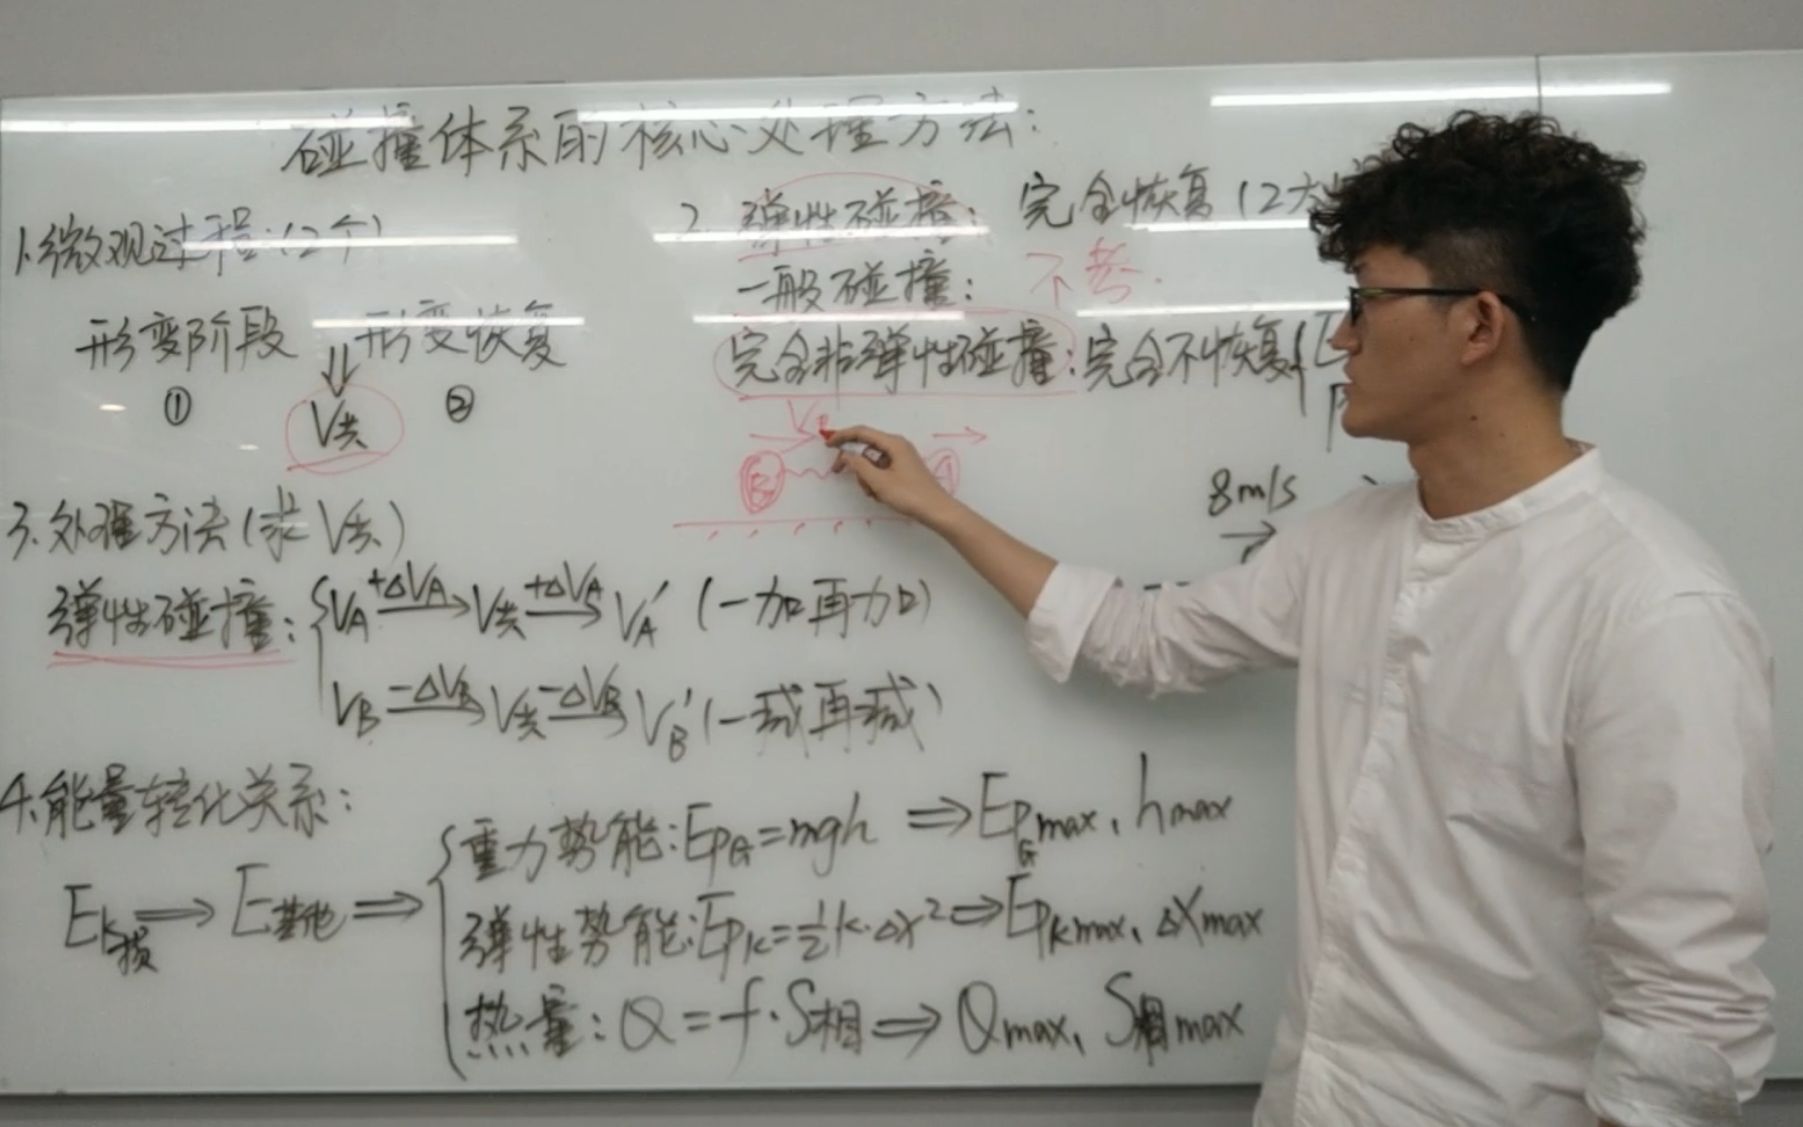 碰撞体系的核心处理方法:
1.微观过程:(2个)
形变阶段 形变恢复
① ⇓ ②
V共
2. 弹性碰撞: 完全恢复(2大
一般碰撞: 不考.
完全非弹性碰撞:完全不恢复{
V
B
8m/s
3.处理方法(求V共)
弹性碰撞: { VA +ΔVA→ V共 +ΔVA→ VA' (一加再加)
VB −ΔVB→ V共 −ΔVB→ VB' (一减再减)
4.能量转化关系:
Ek损 ⇒ E其他 ⇒
{ 重力势能:EpG=mgh ⇒ EpGmax、hmax
弹性势能:Epk=½k·Δx² ⇒ Epkmax、ΔXmax
热量:Q=f·S相 ⇒ Qmax、S相max